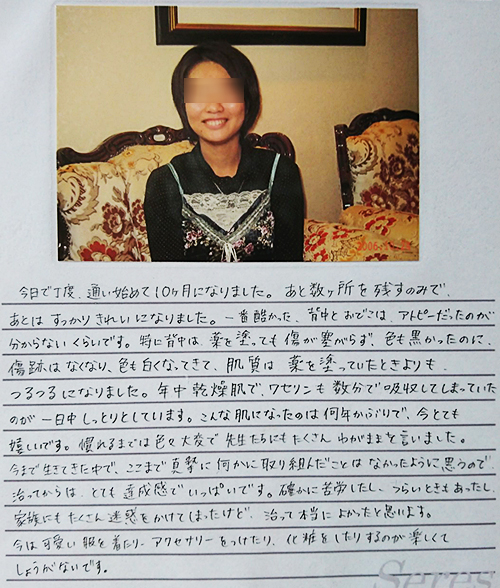 2006
今日で丁度、通い始めて10ヶ月になりました。あと数ヶ所を残すのみで、
あとはすっかりきれいになりました。一番酷かった、背中とおでこは、アトピーだったのが
分からないくらいです。特に背中は、薬を塗っても傷が塞がらず、色も黒かったのに、
傷跡はなくなり、色も白くなってきて、肌質は薬を塗っていたときよりも、
つるつるになりました。年中乾燥肌で、ワセリンも数分で吸収してしまっていた
のが一日中しっとりとしています。こんな肌になったのは何年かぶりで、今とても
嬉しいです。慣れるまでは色々大変で先生たちにもたくさんわがままを言いました。
今まで生きてきた中で、ここまで真摯に何かに取り組んだことはなかったように思うので
治ってからは、とても達成感でいっぱいです。確かに苦労したし、つらいときもあったし
家族にもたくさん迷惑をかけてしまったけど、治って本当によかったと思います。
今は可愛い服を着たり、アクセサリーをつけたり、化粧をしたりするのが楽しくて
しょうがないです。